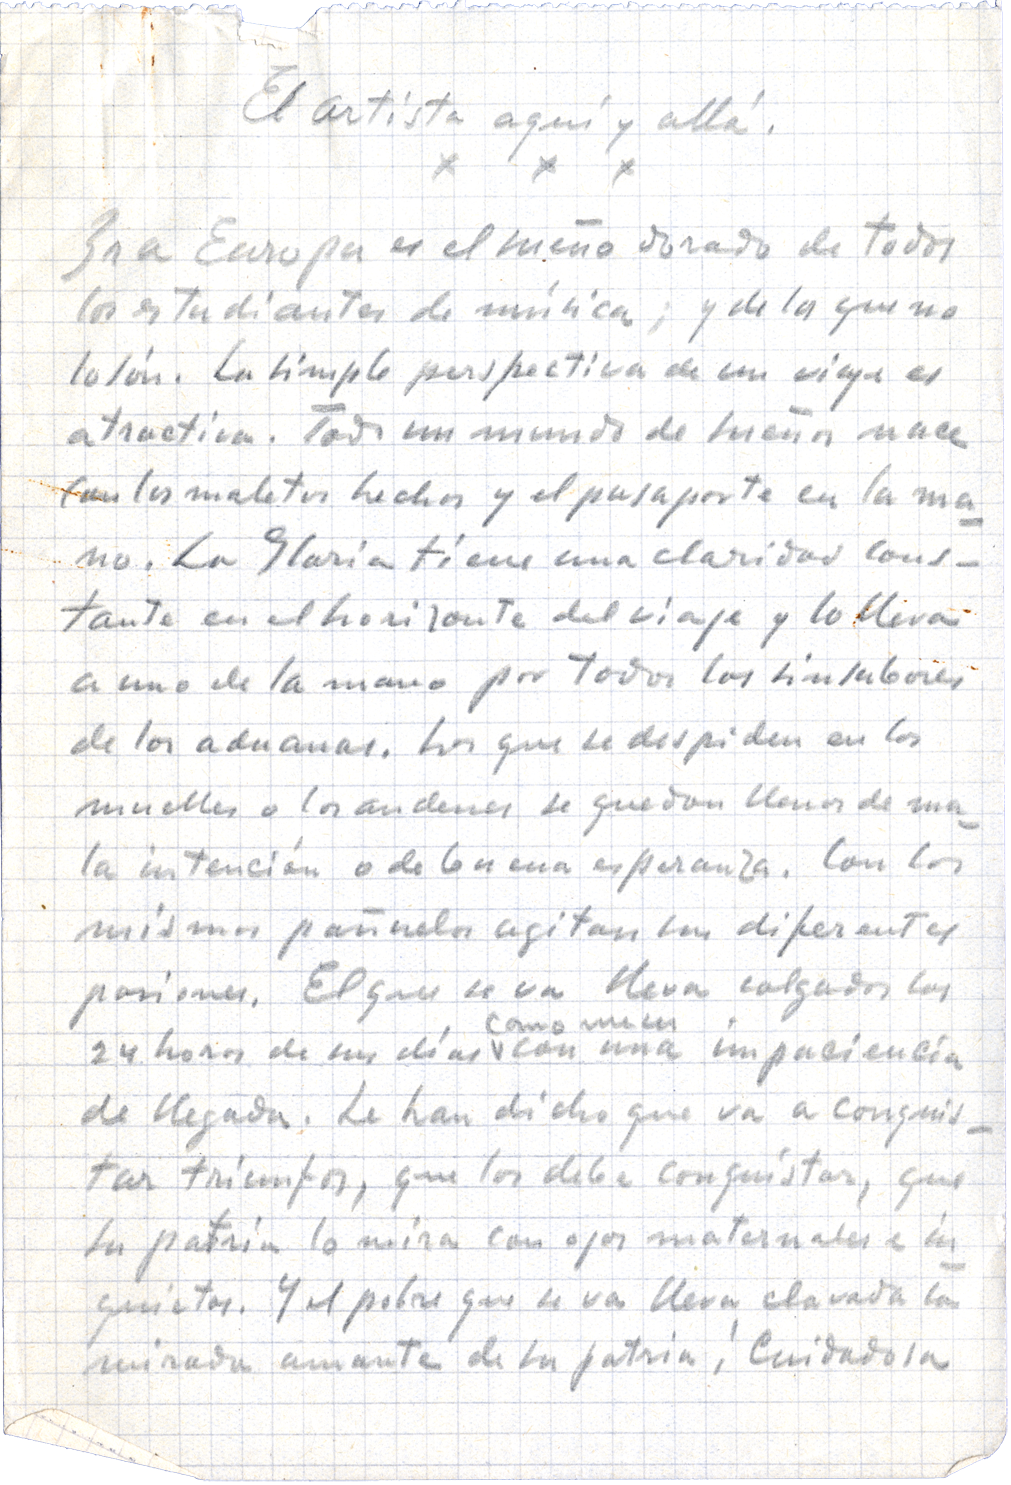 El artista aquí y allá.
x x x
Ir a Europa es el sueño dorado de todos
los estudiantes de música; y de los que no
lo són. La simple perspectiva de un viaje es
atractiva. Todo un mundo de sueños nace
con las maletas hechas y el pasaporte en la ma-
no. La Gloria tiene una claridad cons-
tante en el horizonte del viaje y lo lleva
a uno de la mano por todos los sinsabores
de las aduanas. Los que se despiden en los
muelles o los andenes se quedan llenos de ma-
la intención o de buena esperanza. Con los
mismos pañuelos agitan sus diferentes
pasiones. El que se va lleva colgados las
como
24 horas de sus días con una impaciencia
de llegada. Le han dicho que va a conquis-
tar triunfos, que los debe conquistar, que
su patria lo mira con ojos maternales e in-
quietos. Y el pobre que se va lleva clavada la
mirada amante de su patria, Cuidadosa